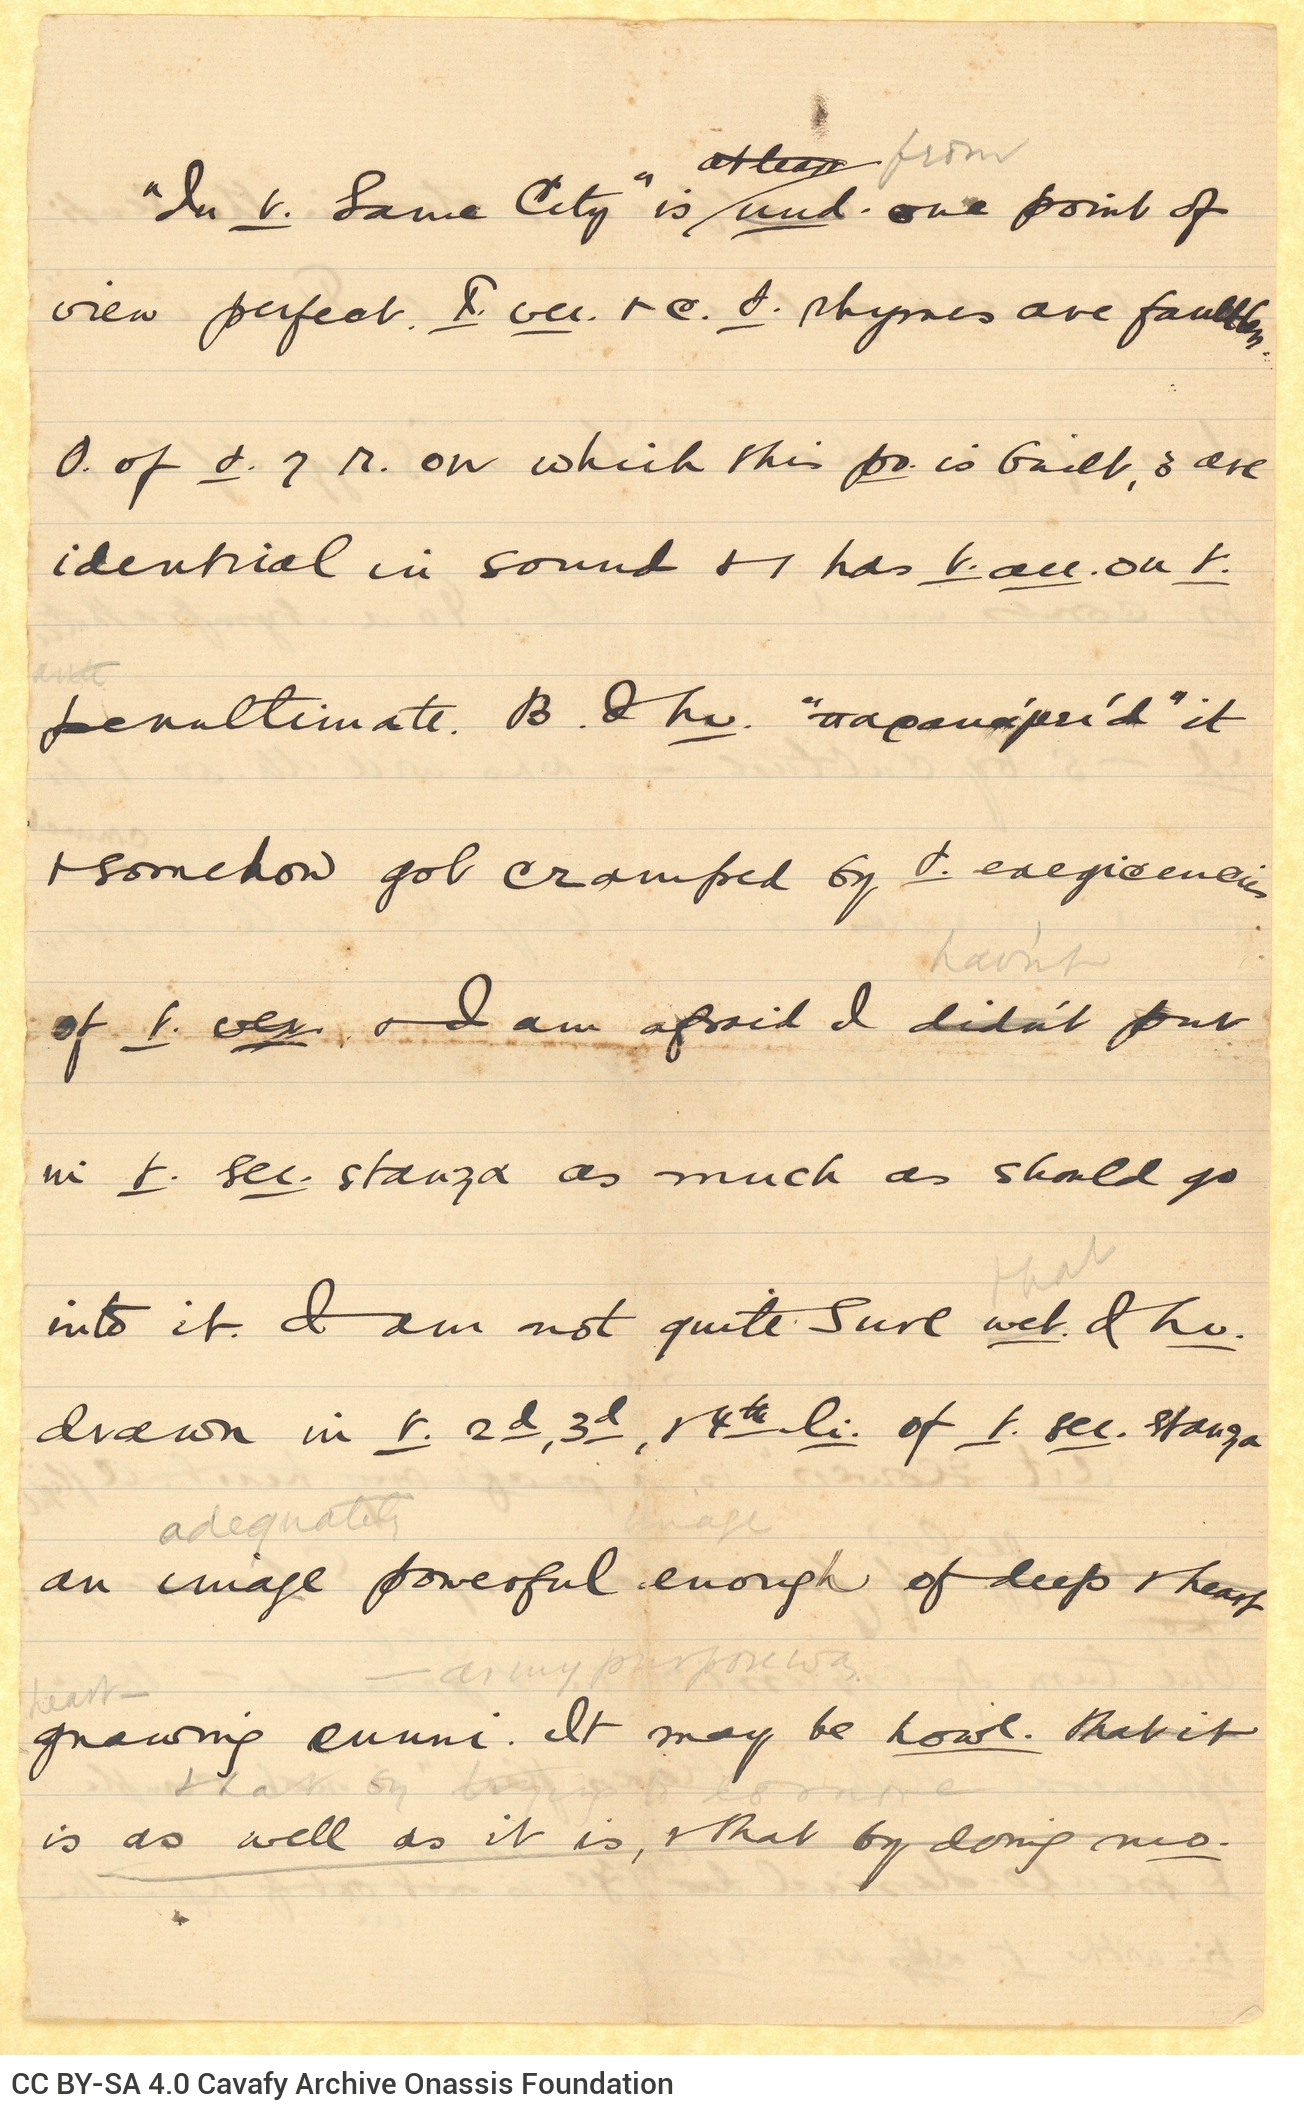 from
"In t. Same City" is und. one point of
view perfect. T. ver. + c. t. rhymes are faultless.
O. of t. 7 r. on which this po. is built, 3 are
identical in sound + 1 has t. acc. on t.
ante
penultimate. B. I hv. it
+ somehow got cramped by t. exegicencies
hav'nt
of t. ver. + I am afraid I didn't put
in t. sec. stanza as much as should go
into it. I am not quite sure wet. I hv.
that
drawn in t. 2d, 3d, + 4th li. of t. sec. stanza
adequately image
an image powerful enough of deep + heart
— as my purpose was
heart—
gnawing ennui. It may be howe. that it
that by
is as well as it is, + that by doing mo.
CC BY-SA 4.0 Cavafy Archive Onassis Foundation